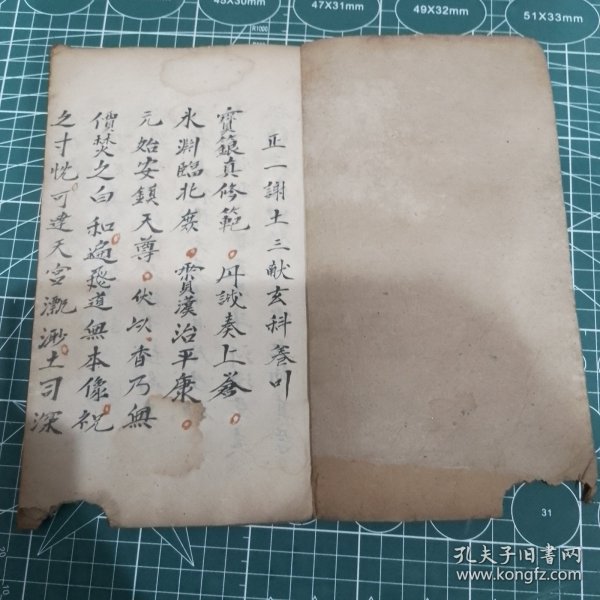 正一謝土三献玄科卷
寶籙真修範。丹誠奏上蒼。
氷淵臨北 。 漢治平康。
元始安鎮天尊。伏以香乃無
價焚之白和遍飛道無本像祝
之寸忱可達天宮瀰渺土司深
47X31mm
49X32mm
51X33mm
31
孔夫子旧书网
www.kongfz.com